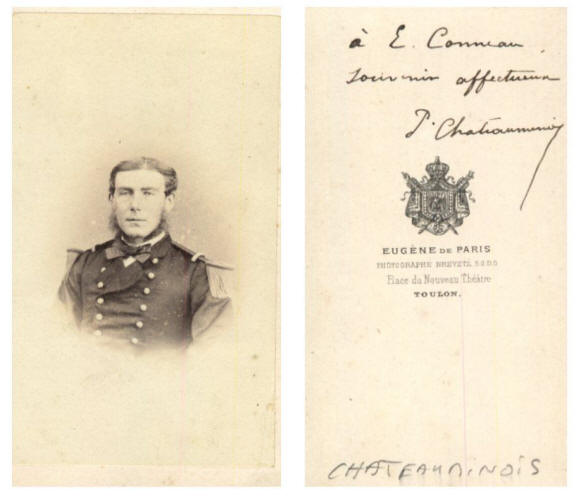 à E. Conneau.
Souvenir affectueux
P. Chateauminois
EUGÈNE DE PARIS
PHOTOGRAPHE BREVETÉ S.G.D.G
Place du Nouveau Théâtre
TOULON.
CHATEAUMINOIS